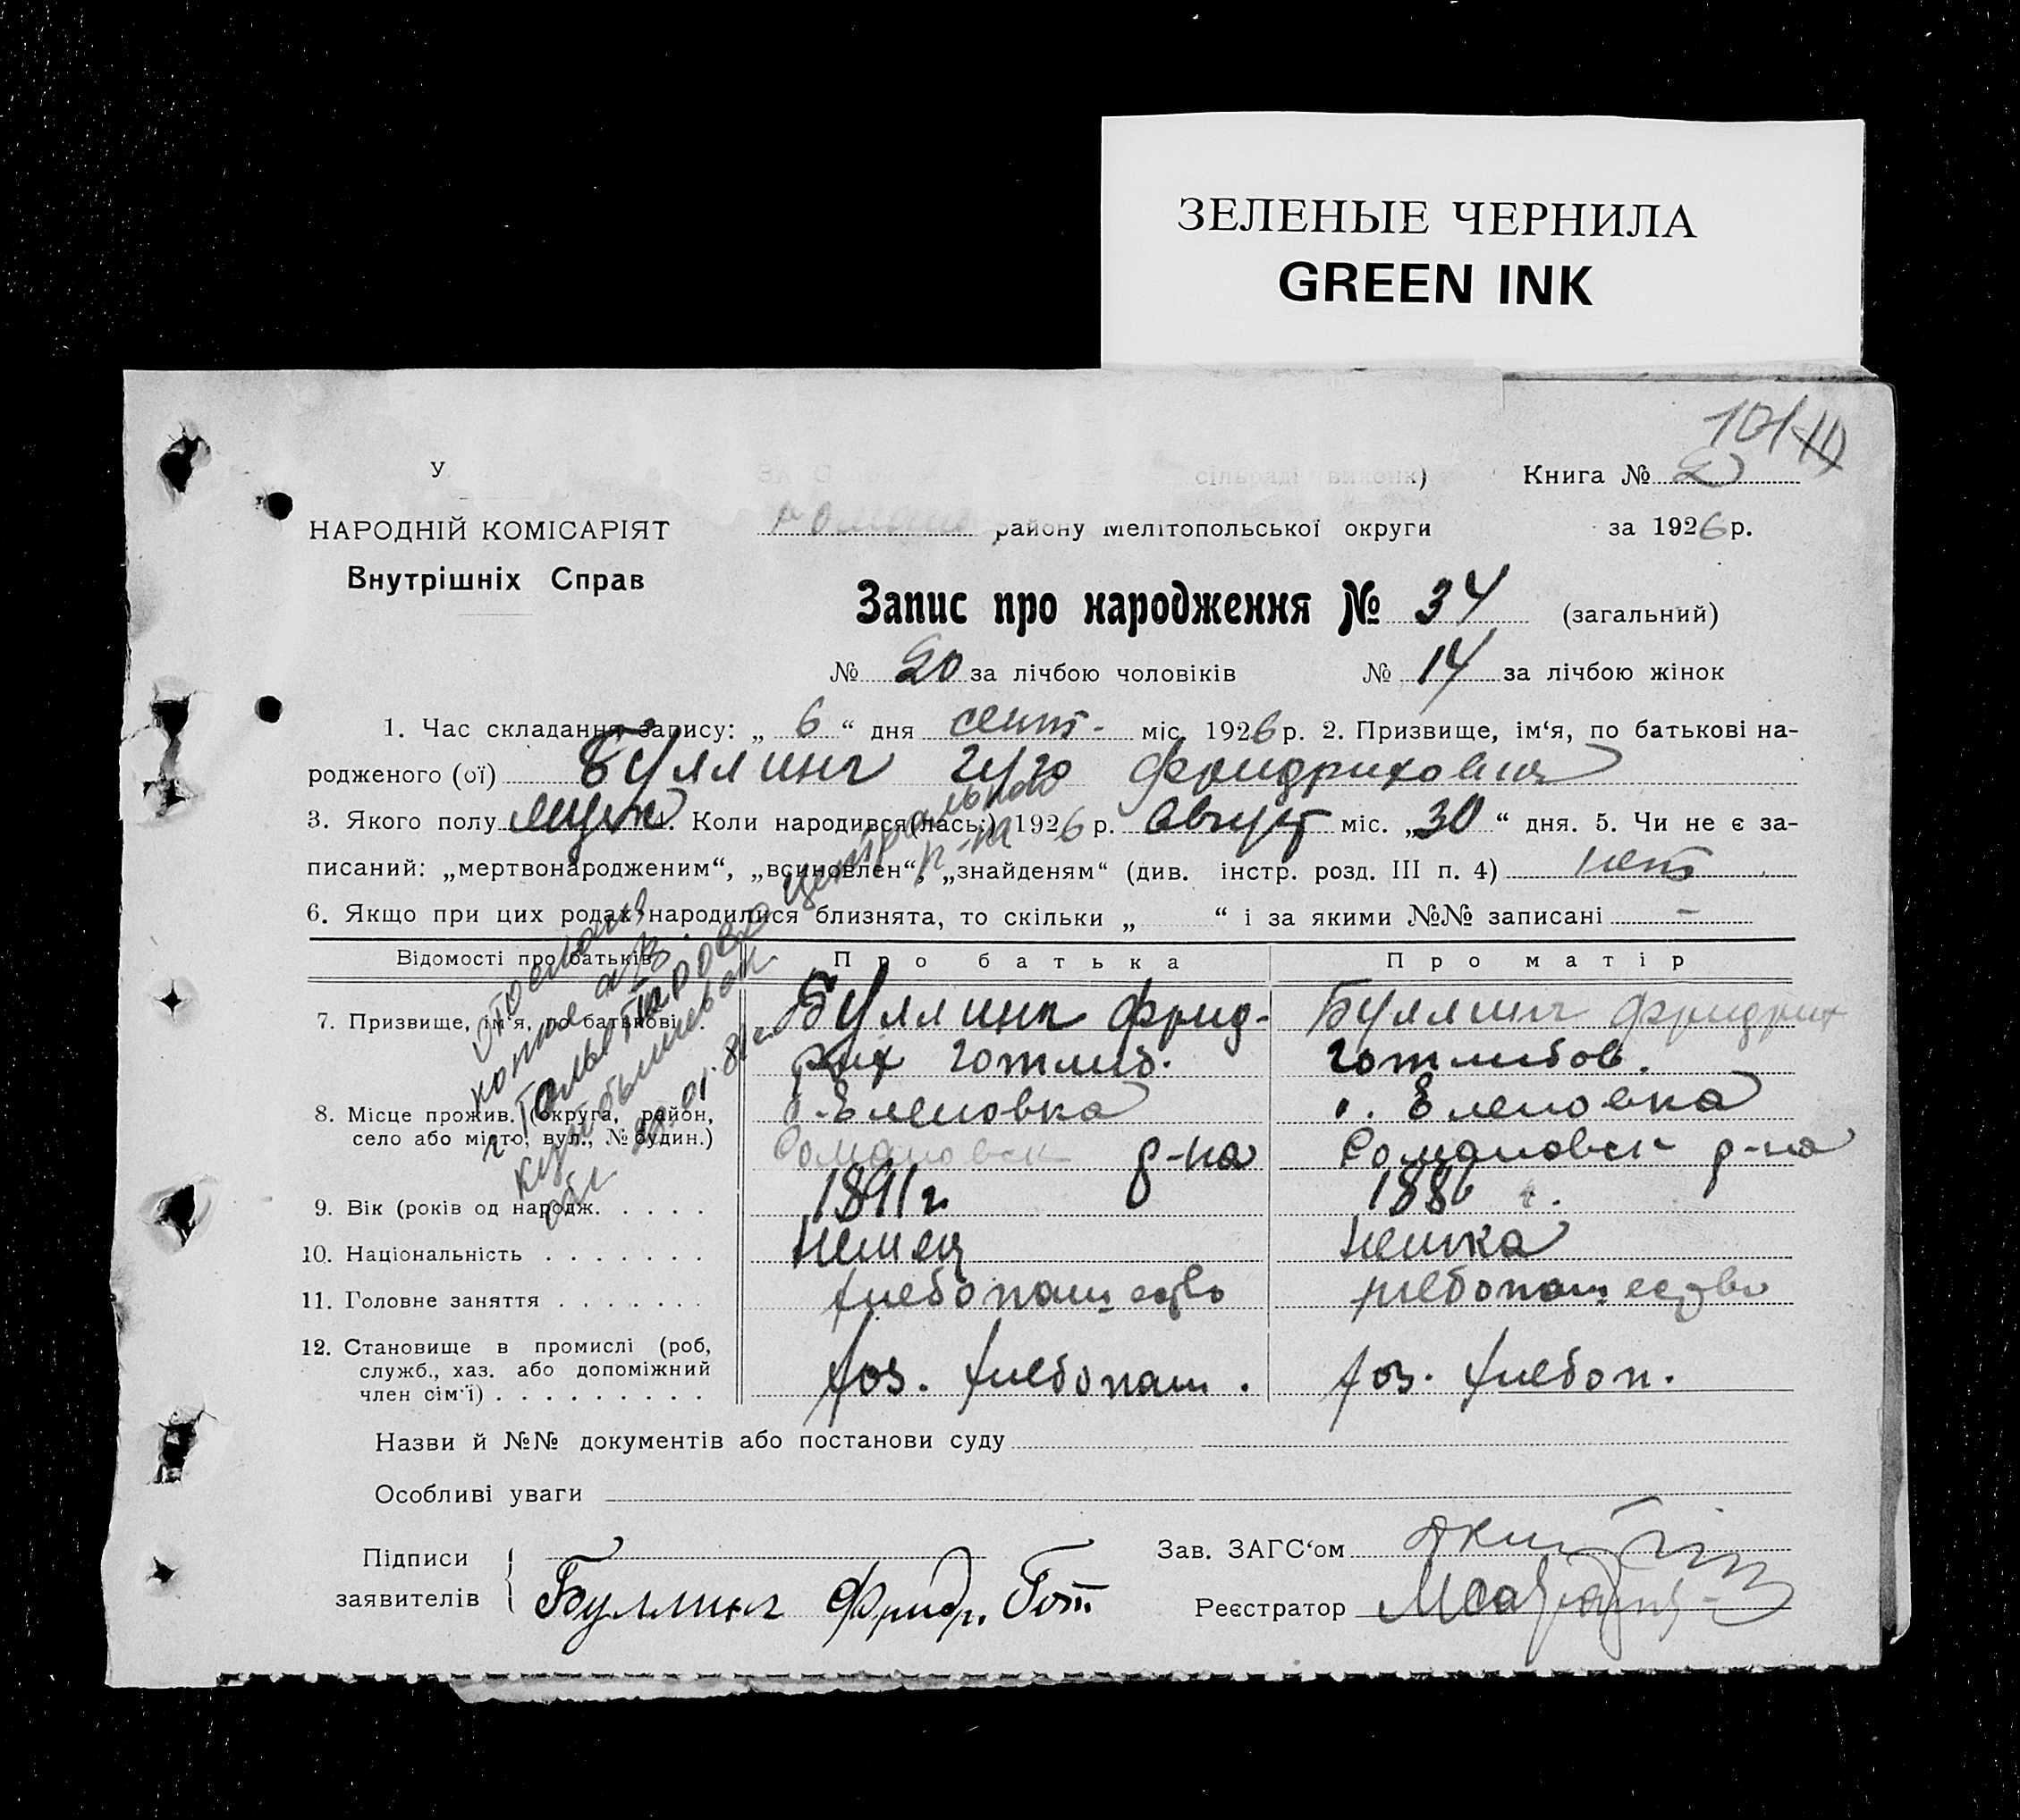 ЗЕЛЕНЫЕ ЧЕРНИЛА
GREEN INK
101
У ЗАГС сільраді виконк) Книга № 2
НАРОДНІЙ КОМІСАРІЯТ
району Мелітопольської округи за 1926 р.
Внутрішніх Справ
Запис про народження № 34 (загальний)
№ 20 за лічбою чоловіків № 14 за лічбою жінок
1. Час складання запису: „ 6 “ дня сент. міс. 1926 р. 2. Призвище, ім‘я, по батькові на-
родженого (ої) Буллинг Гуго Фридрихович
3. Якого полу муж 4. Коли народився(лась:) 1926 р. Август міс. „30“ дня. 5. Чи не є за-
писаний: „мертвонародженим“, „всиновлен“, „знайденям“ (див. інстр. розд. III п. 4) нет
6. Якщо при цих родах народилися близнята, то скільки „ “ і за якими №№ записані -
Відомості про батьків Про батька Про матір
7. Призвище, ім‘я, по батькові . Буллинг Фрид- Буллинг Фридрих
рих Готлиб. Готлибов.
8. Місце прожив. (округа, район, с. Еленовка с. Еленовка
село або місто, вул., № будин.) Романовск р-на Романовск р-на
9. Вік (років од народж. . . . . . 1891 г. 1886 г.
10. Національність . . . . . . . Немец Немка
11. Головне заняття . . . . . . . хлебопашество хлебопашество
12. Становище в промислі (роб,
служб., хаз. або допоміжний хоз. хлебопаш. хоз. хлебоп.
член сім‘ї) . . . . . . . . .
Назви й №№ документів або постанови суду
Особливі уваги
Підписи Зав. ЗАГС‘ом
заявителів Буллинг Фридр. Гот. Реєстратор
отослана
копия а/з
г Тольятти
Центрального
р-на
Куйбышевск
обл 29.01.81 г.